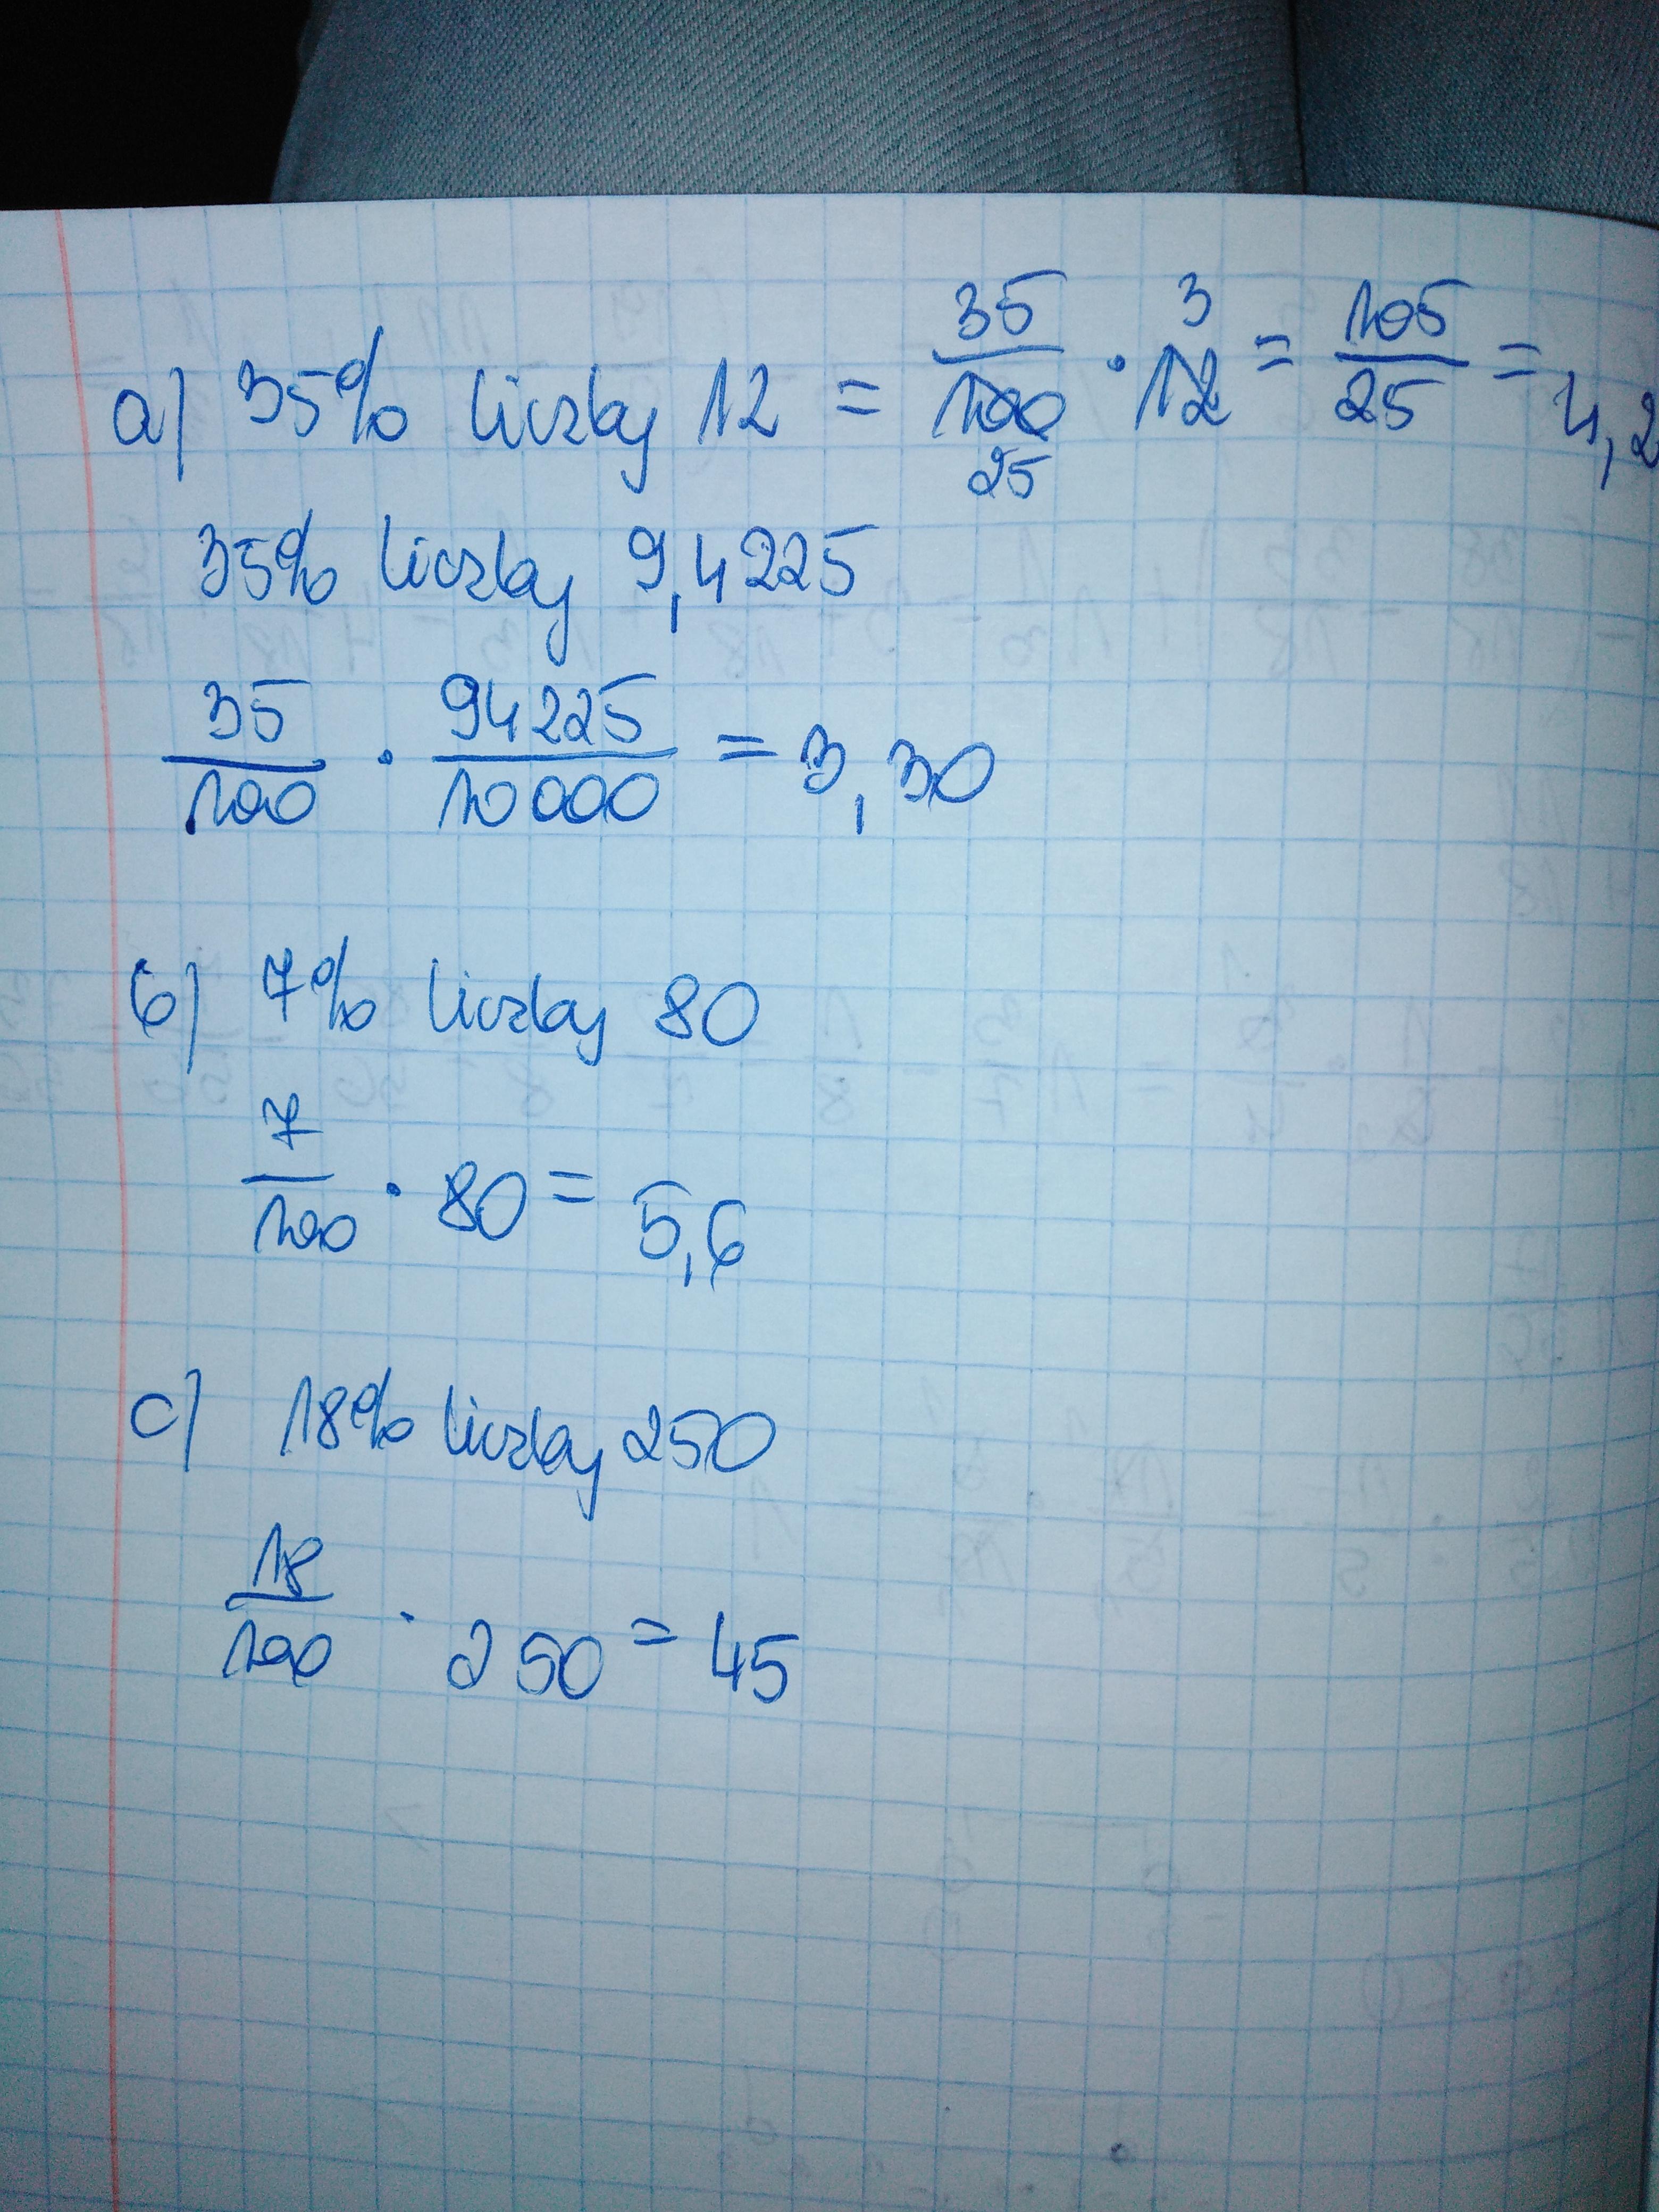 a) 35% liczby 12 = 35/100 · 12 = 105/25 = 4,2
3
25
35% liczby 9,4225
35/100 · 94225/10000 = 3,30
b) 7% liczby 80
7/100 · 80 = 5,6
c) 18% liczby 250
18/100 · 250 = 45